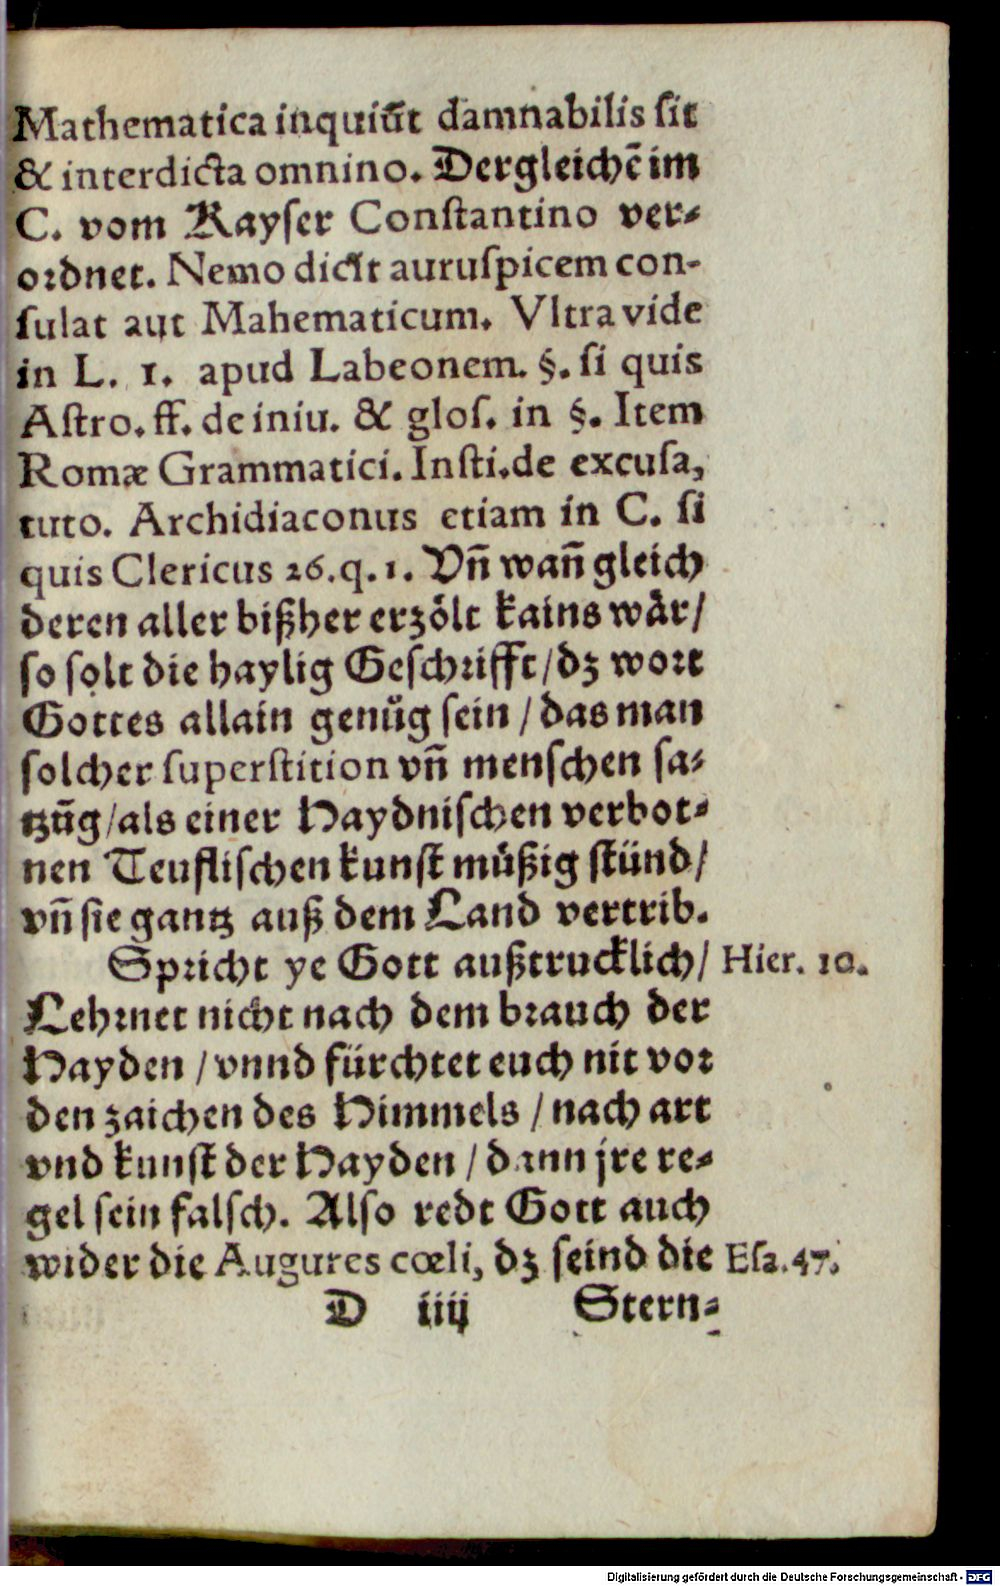 Mathematica inquiūt damnabilis ſit
& interdicta omnino. Dergleichē im
C. vom Kayſer Conſtantino ver⸗
ordnet. Nemo dicit auruſpicem con-
ſulat aut Mahematicum. Vltra vide
in L. 1. apud Labeonem. §. ſi quis
Aſtro. ff. de iniu. & gloſ. in §. Item
Romæ Grammatici. Inſti. de excuſa,
tuto. Archidiaconus etiam in C. ſi
quis Clericus 26. q. 1. Vn̄ wan̄ gleich
deren aller bißher erzölt kains wår/
ſo ſolt die haylig Geſchrifft/dz wort
Gottes allain genůg ſein / das man
ſolcher ſuperſtition vn̄ menſchen ſa⸗
tzūg/als einer Haydniſchen verbot⸗
nen Teufliſchen kunſt můßig ſtünd/
vn̄ ſie gantz auß dem Land vertrib.
Spricht ye Gott außtrucklich/ Hier. 10.
Lehrnet nicht nach dem brauch der
Hayden / vnnd fürchtet euch nit vor
den zaichen des Himmels / nach art
vnd kunſt der Hayden / dann jre re⸗
gel ſein falſch. Alſo redt Gott auch
wider die Augures cœli, dz ſeind die Eſa. 47.
D iiij Stern⸗
Digitalisierung gefördert durch die Deutsche Forschungsgemeinschaft - DFG